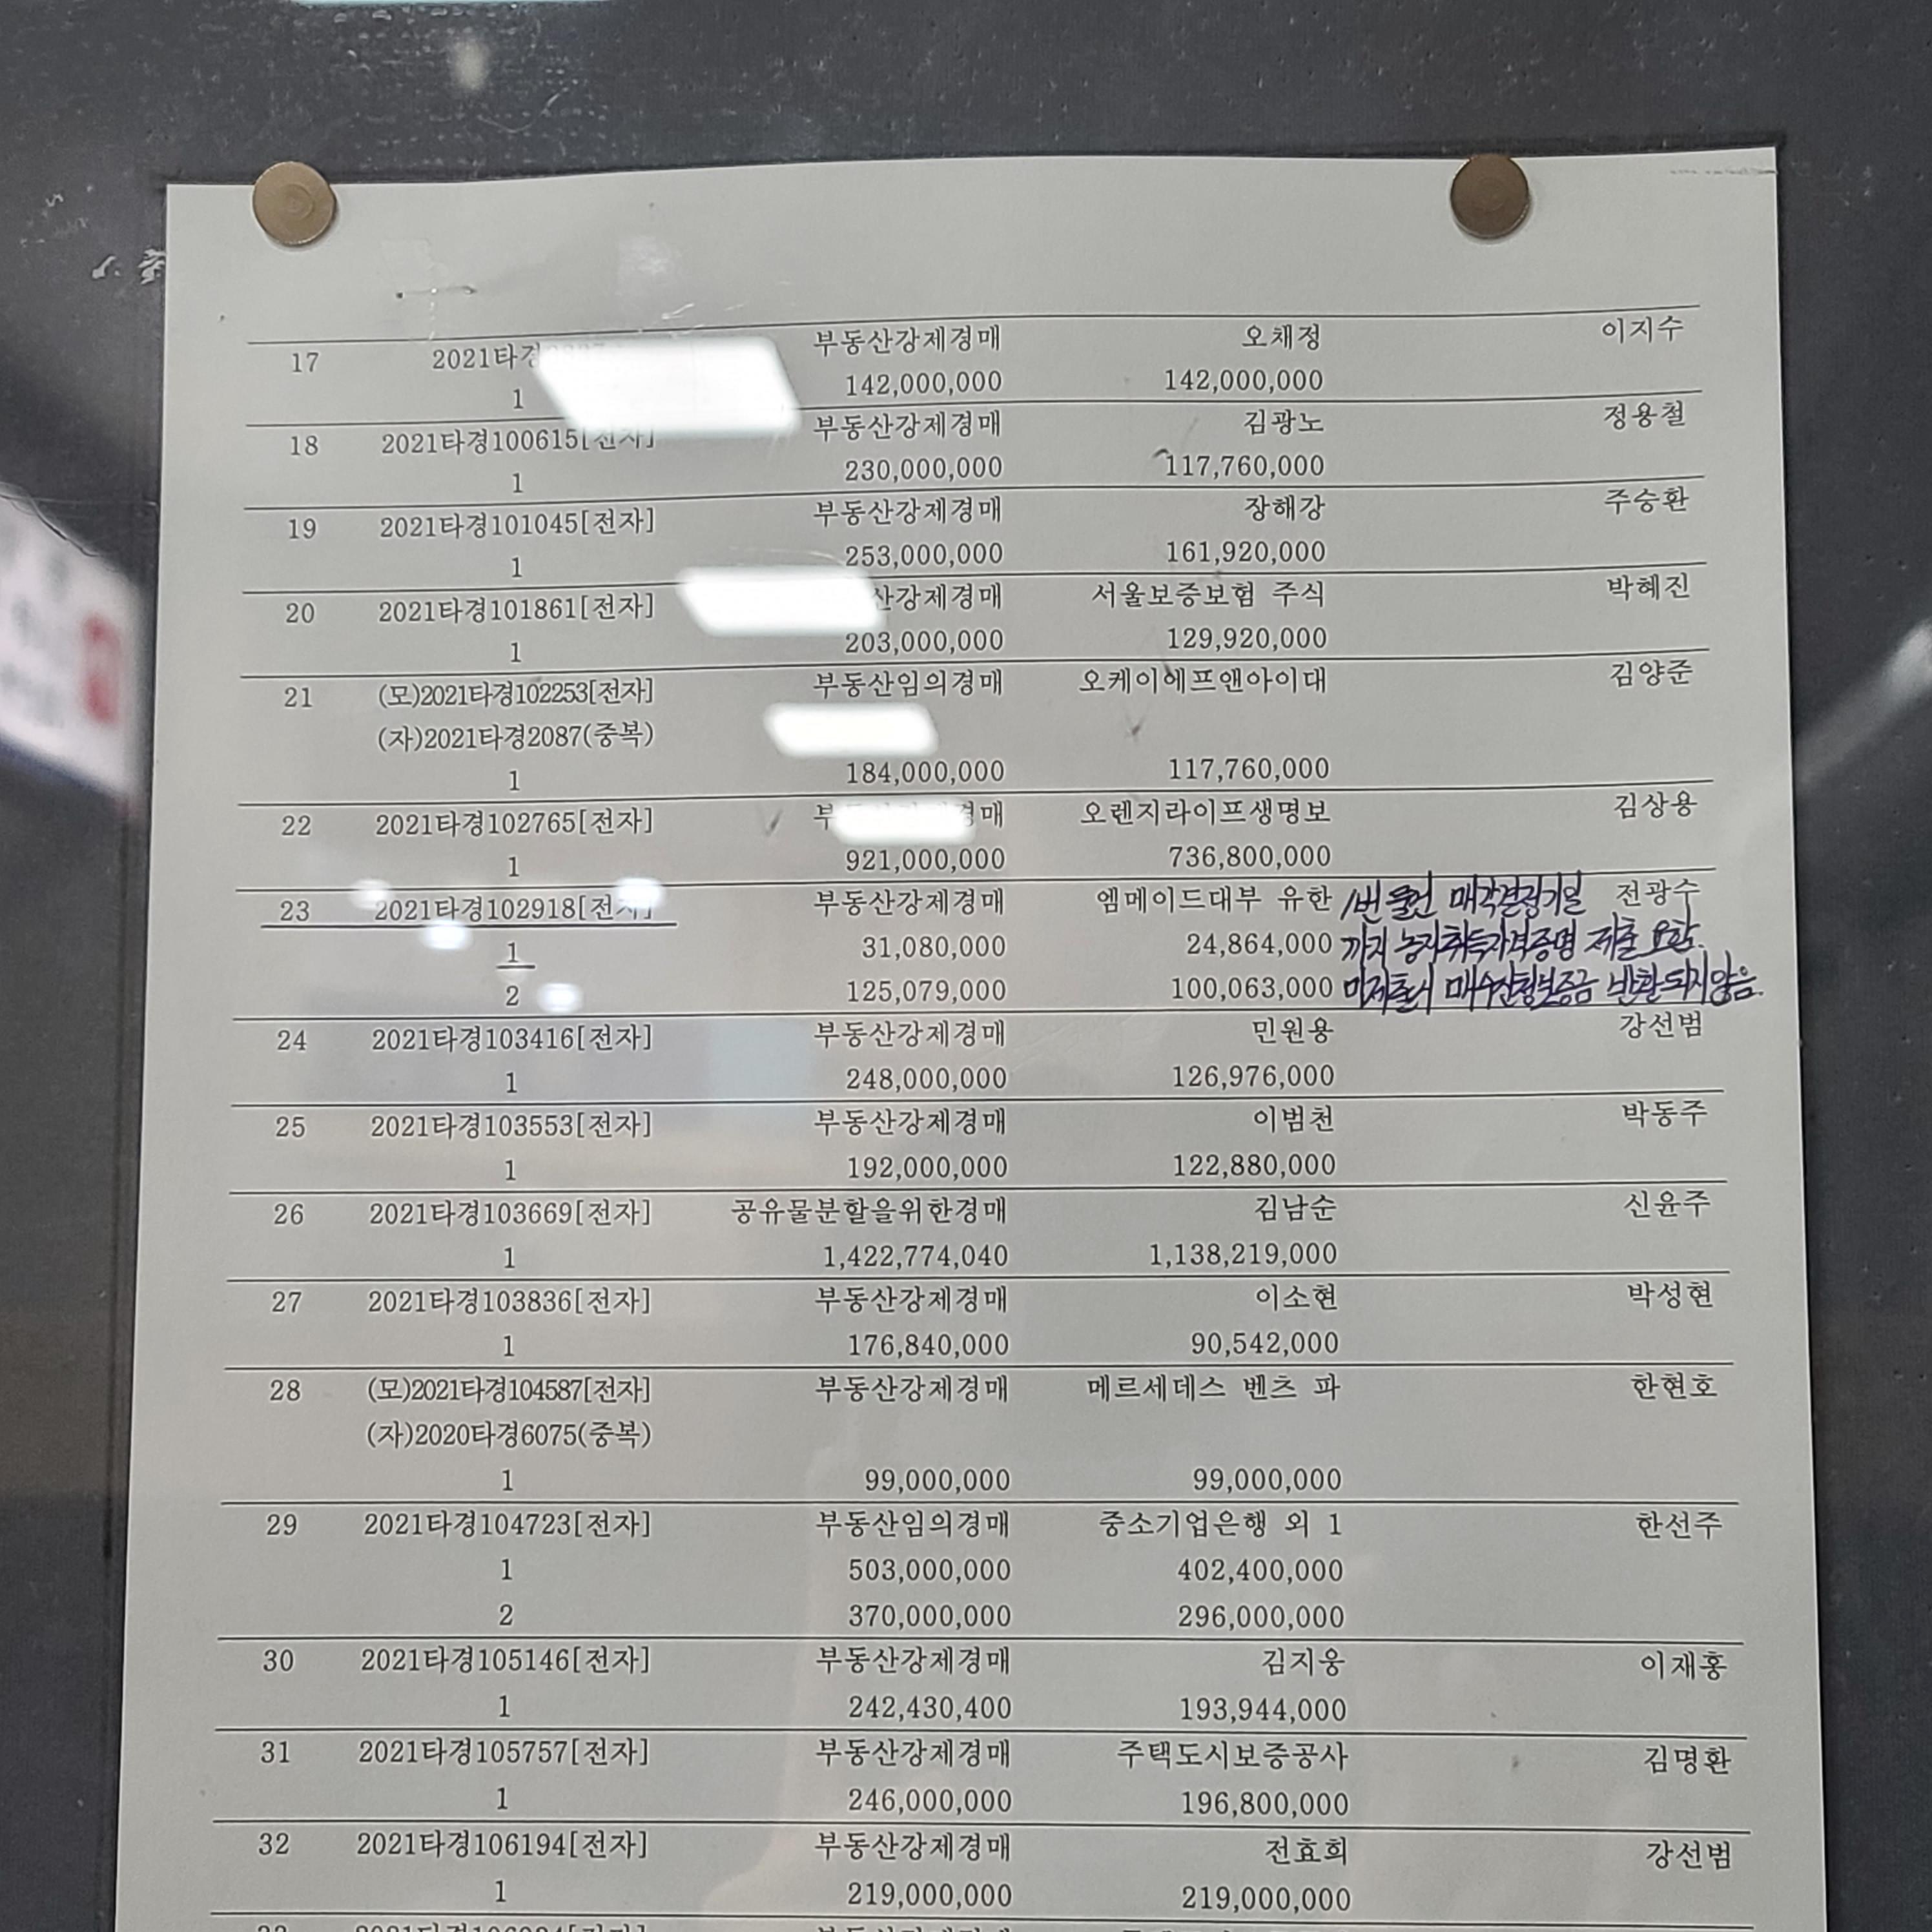 17 2021타경 부동산강제경매 오채정 이지수
1 142,000,000 142,000,000
18 2021타경100615[전자] 부동산강제경매 김광노 정용철
1 230,000,000 117,760,000
19 2021타경101045[전자] 부동산강제경매 장해강 주승환
1 253,000,000 161,920,000
20 2021타경101861[전자] 산강제경매 서울보증보험 주식 박혜진
1 203,000,000 129,920,000
21 (모)2021타경102253[전자] 부동산임의경매 오케이에프앤아이대 김양준
(자)2021타경2087(중복)
1 184,000,000 117,760,000
22 2021타경102765[전자] 오렌지라이프생명보 김상용
1 921,000,000 736,800,000
23 2021타경102918[전자] 부동산강제경매 엠메이드대부 유한 1번 물건 매각결정기일 전광수
1 31,080,000 24,864,000 까지 농지취득자격증명 제출 요함.
2 125,079,000 100,063,000 미제출시 매수신청보증금 반환되지않음.
24 2021타경103416[전자] 부동산강제경매 민원용 강선범
1 248,000,000 126,976,000
25 2021타경103553[전자] 부동산강제경매 이범천 박동주
1 192,000,000 122,880,000
26 2021타경103669[전자] 공유물분할을위한경매 김남순 신윤주
1 1,422,774,040 1,138,219,000
27 2021타경103836[전자] 부동산강제경매 이소현 박성현
1 176,840,000 90,542,000
28 (모)2021타경104587[전자] 부동산강제경매 메르세데스 벤츠 파 한현호
(자)2020타경6075(중복)
1 99,000,000 99,000,000
29 2021타경104723[전자] 부동산임의경매 중소기업은행 외 1 한선주
1 503,000,000 402,400,000
2 370,000,000 296,000,000
30 2021타경105146[전자] 부동산강제경매 김지웅 이재홍
1 242,430,400 193,944,000
31 2021타경105757[전자] 부동산강제경매 주택도시보증공사 김명환
1 246,000,000 196,800,000
32 2021타경106194[전자] 부동산강제경매 전효희 강선범
1 219,000,000 219,000,000